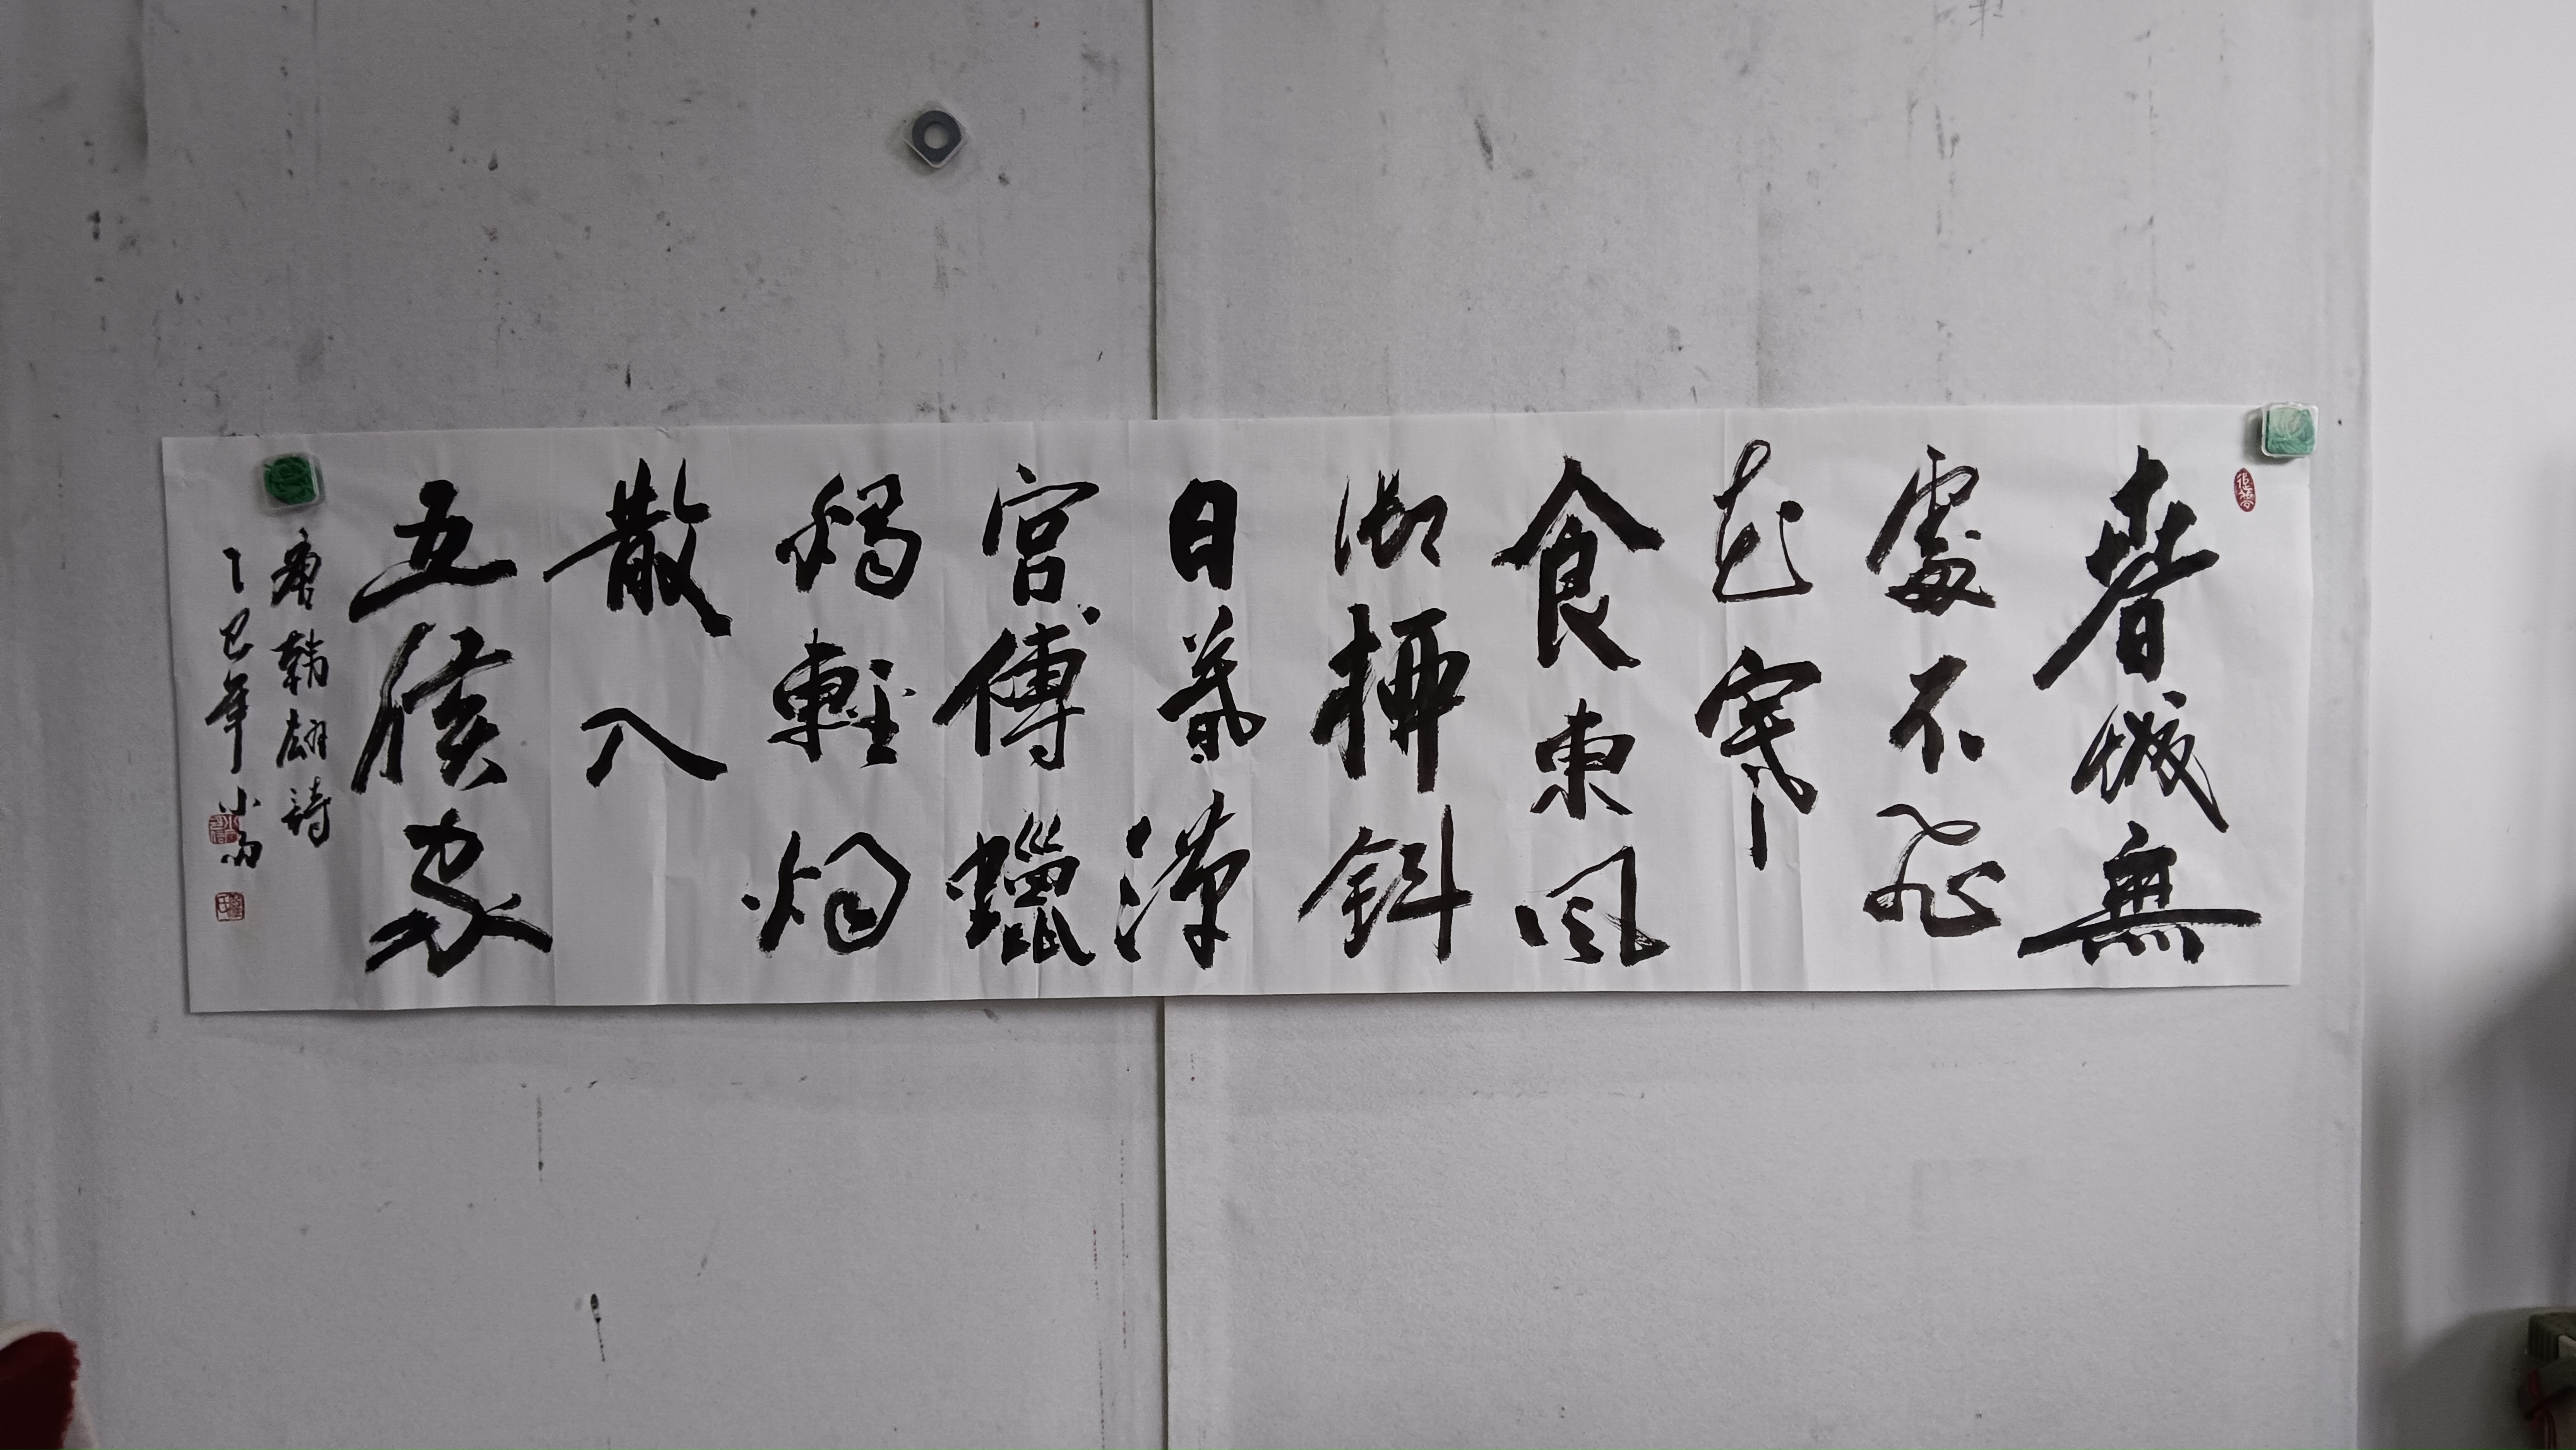 春城無
處不飛
花寒
食東風
御柳斜
日暮漢
宮傳蠟
燭輕烟
散入
五侯家
唐韓翃詩
乙巳年